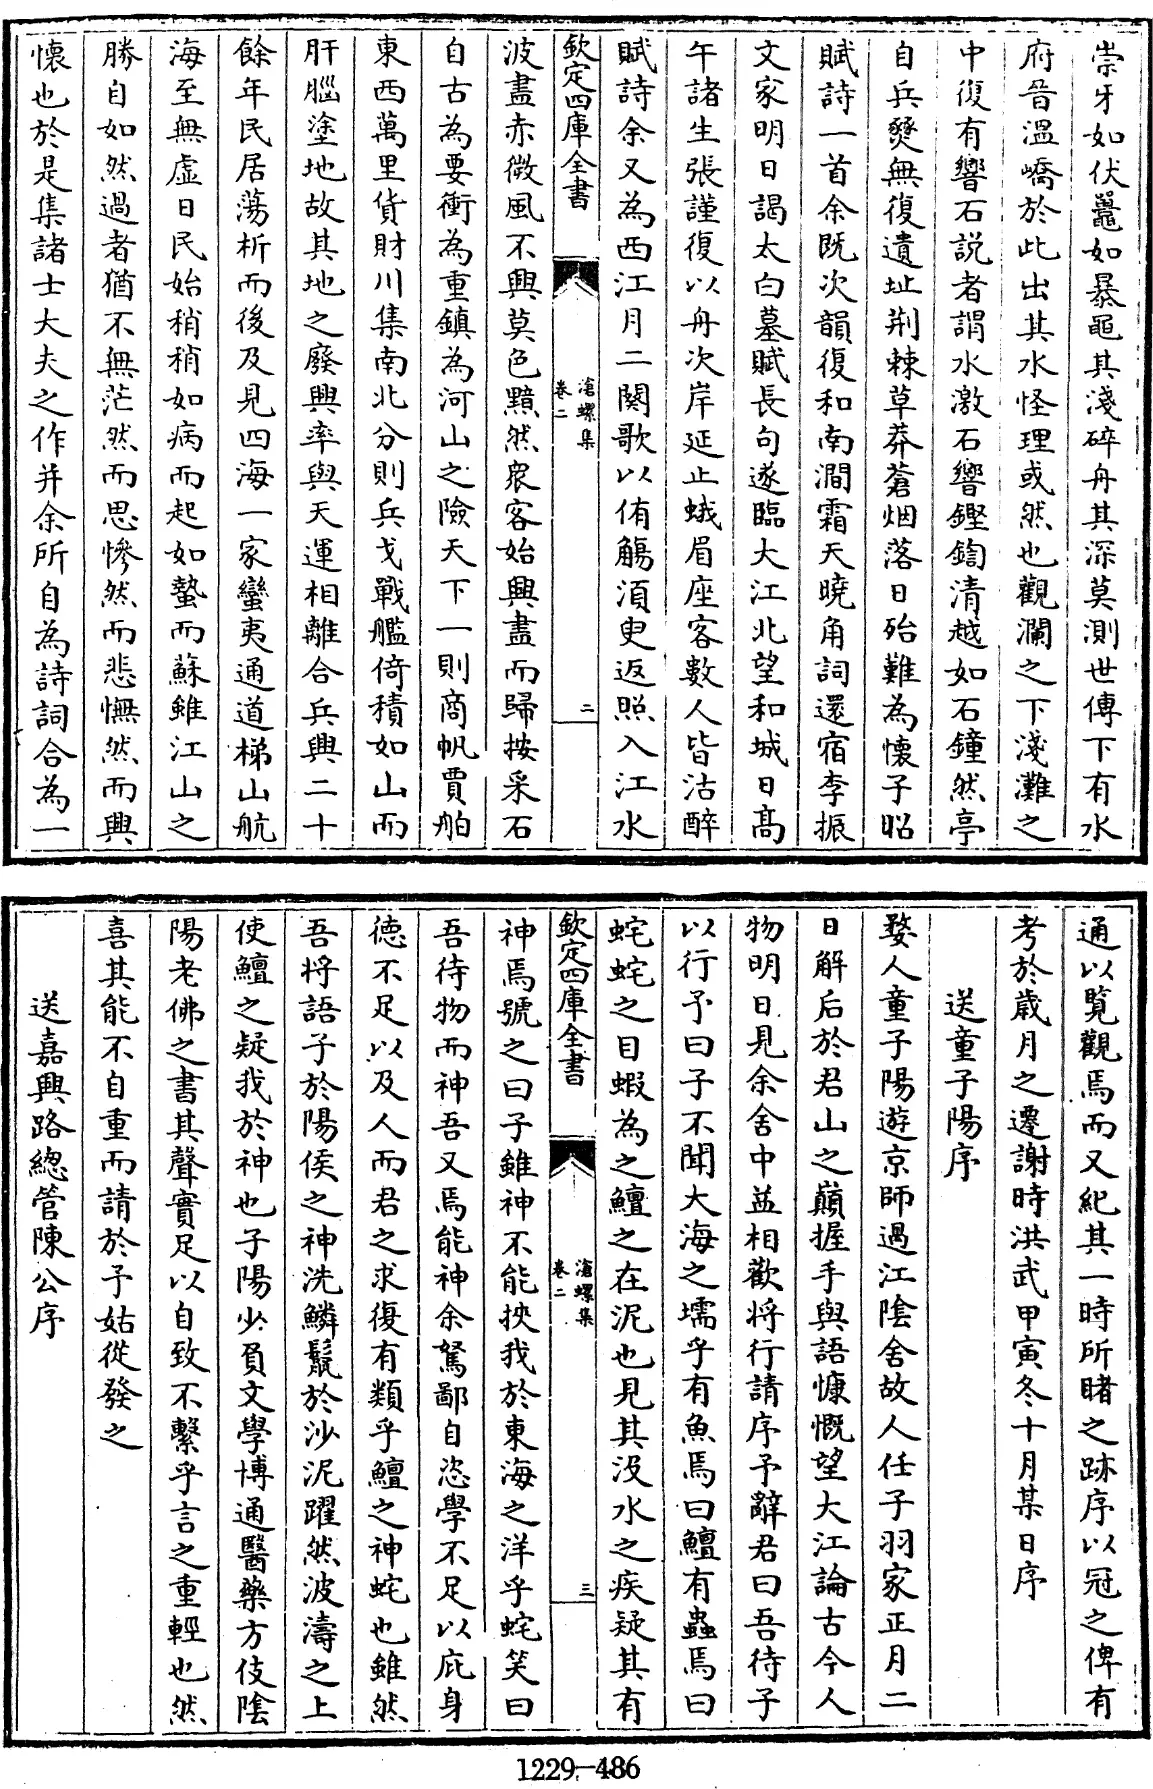 崇牙如伏鼉如暴黿其淺碎舟其深莫測世傳下有水
府晉溫嶠於此出其水怪理或然也觀瀾之下淺灘之
中復有響石説者謂水激石響鏗鍧清越如石鐘然亭
自兵燹無復遺址荆棘草莽蒼烟落日殆難為懷子昭
賦詩一首余既次韻復和南澗霜天曉角詞還宿李振
文家明日謁太白墓賦長句遂臨大江北望和城日髙
午諸生張謹復以舟次岸延止蛾眉座客數人皆沽醉
賦詩余又為西江月二闋歌以侑觴須臾返照入江水
欽定四庫全書
滄螺集
卷二
二
波盡赤微風不興莫色黯然衆客始興盡而歸按采石
自古為要衝為重鎮為河山之險天下一則商帆賈舶
東西萬里貨財川集南北分則兵戈戰艦倚積如山而
肝腦塗地故其地之廢興率與天運相離合兵興二十
餘年民居蕩析而後及見四海一家蠻夷通道梯山航
海至無虛日民始稍稍如病而起如蟄而蘇雖江山之
勝自如然過者猶不無茫然而思慘然而悲憮然而興
懐也於是集諸士大夫之作并余所自為詩詞合為一
通以覽觀焉而又紀其一時所睹之跡序以冠之俾有
考於歲月之遷謝時洪武甲寅冬十月某日序
送童子陽序
婺人童子陽遊京師過江陰舍故人任子羽家正月二
日解后於君山之巔握手與語慷慨望大江論古今人
物明日見余舍中益相歡將行請序予辭君曰吾待子
以行予曰子不聞大海之壖乎有魚焉曰鱣有蟲焉曰
蛇蛇之目蝦為之鱣之在泥也見其没水之疾疑其有
欽定四庫全書
滄螺集
卷二
三
神焉號之曰子雖神不能挾我於東海之洋乎蛇笑曰
吾待物而神吾又焉能神余駑鄙自恣學不足以庇身
德不足以及人而君之求復有類乎鱣之神蛇也雖然
吾將語子於陽侯之神洗鱗鬛於沙泥躍然波濤之上
使鱣之疑我於神也子陽少負文學博通醫藥方伎陰
陽老佛之書其聲實足以自致不繫乎言之重輕也然
喜其能不自重而請於予姑從發之
送嘉興路總管陳公序
1229—486